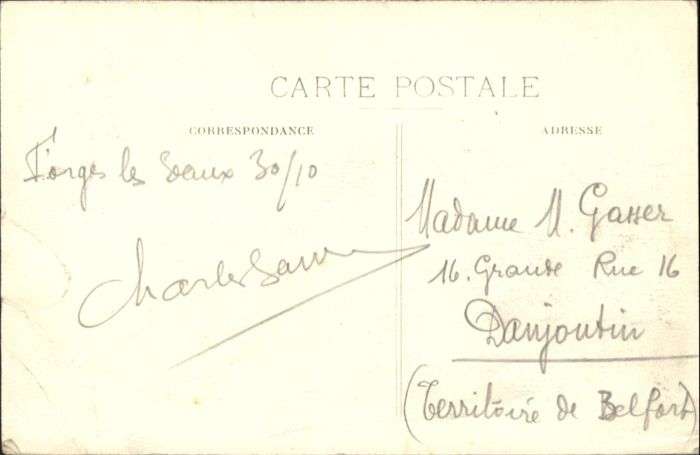 CARTE POSTALE
CORRESPONDANCE
ADRESSE
Forges les Eaux 30/10
Charles
Madame M. Gasser
16. Grande Rue 16
Danjoutin
(Territoire de Belfort)